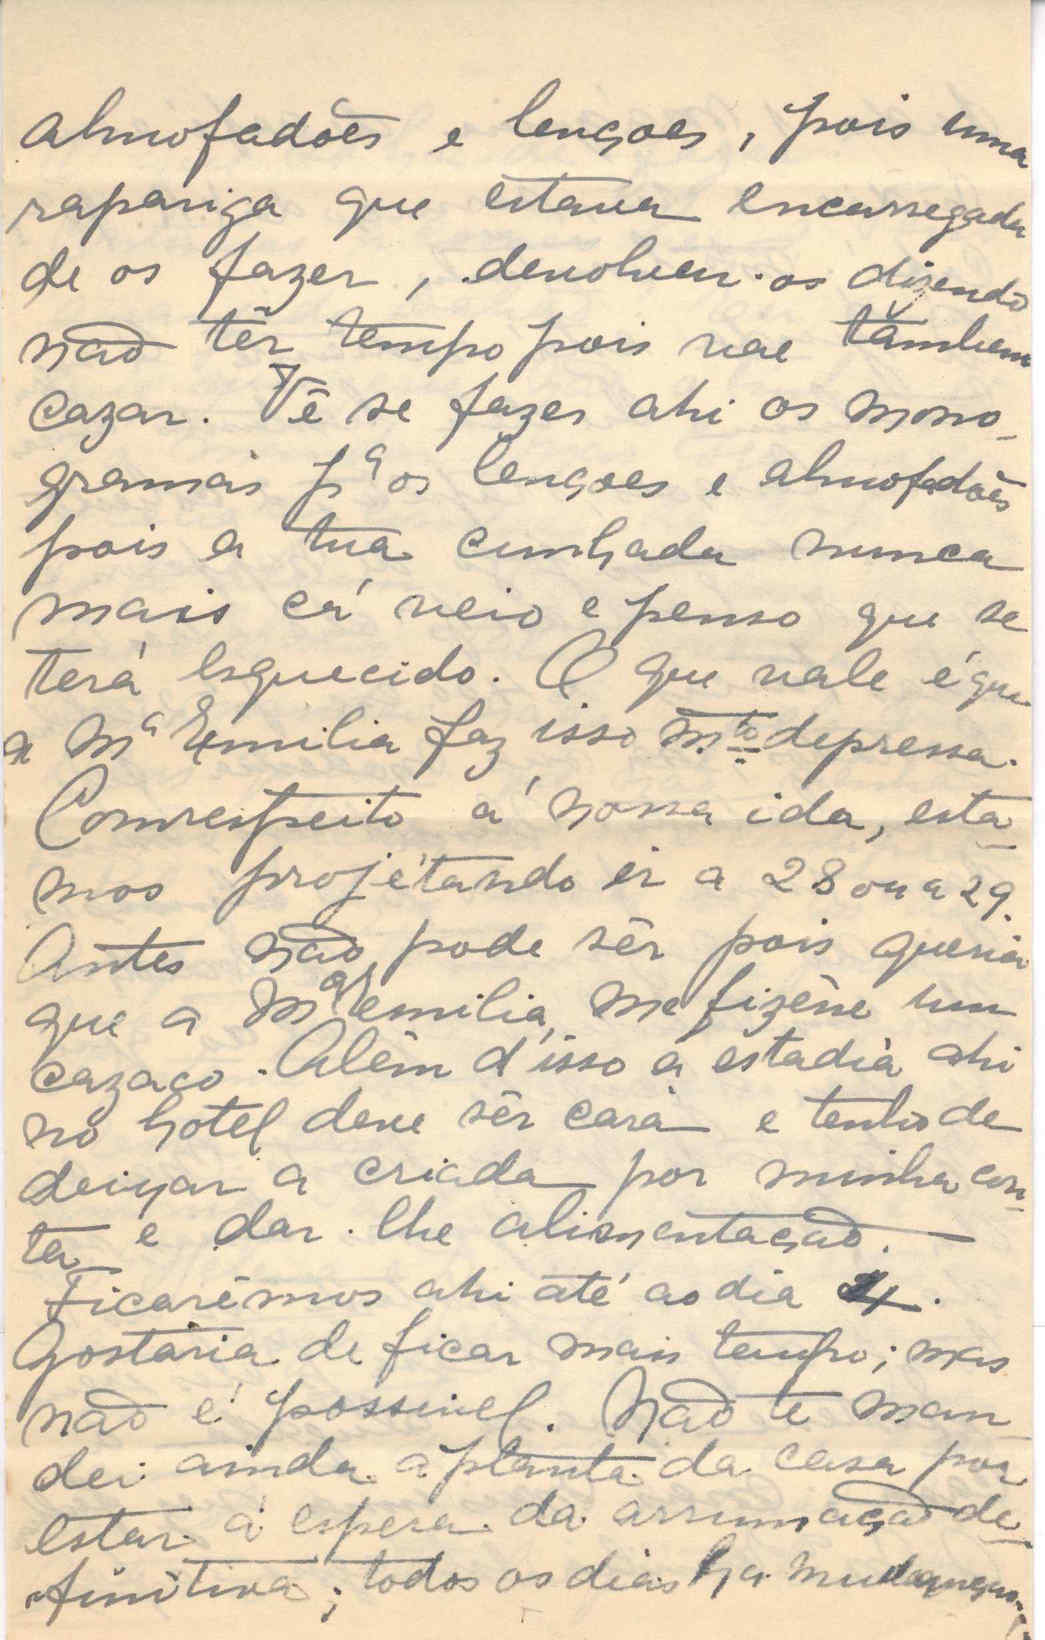 almofadões e lençoes, pois uma
rapariga que estava encarregada
de os fazer, devolveu-os dizendo
não têr tempo pois vae tâmbem
cazar. Vê se fazes ahi os mono-
gramas pª os lençoes e almofadões
pois a tua cunhada nunca
mais cá veio e penso que se
terá esquecido. O que vale é que
a Mª Emilia faz isso mto depressa.
Comrespeito á nossa ida, esta-
mos projétando ir a 28 ou a 29.
Antes não pode sêr pois queria
que a Mª Emilia me fizésse um
cazaco. Além d'isso a estadia ahi
no hotel deve sêr cara e tenho de
deixar a criada por minha con-
ta e dar-lhe alimentação.
Ficarêmos ahi até ao dia 4.
Gostaria de ficar mais tempo; mas
não é possivel. Não te man-
dei ainda a planta da casa por
estar á espera da arrumação de-
finitiva; todos os dias ha mudanças;